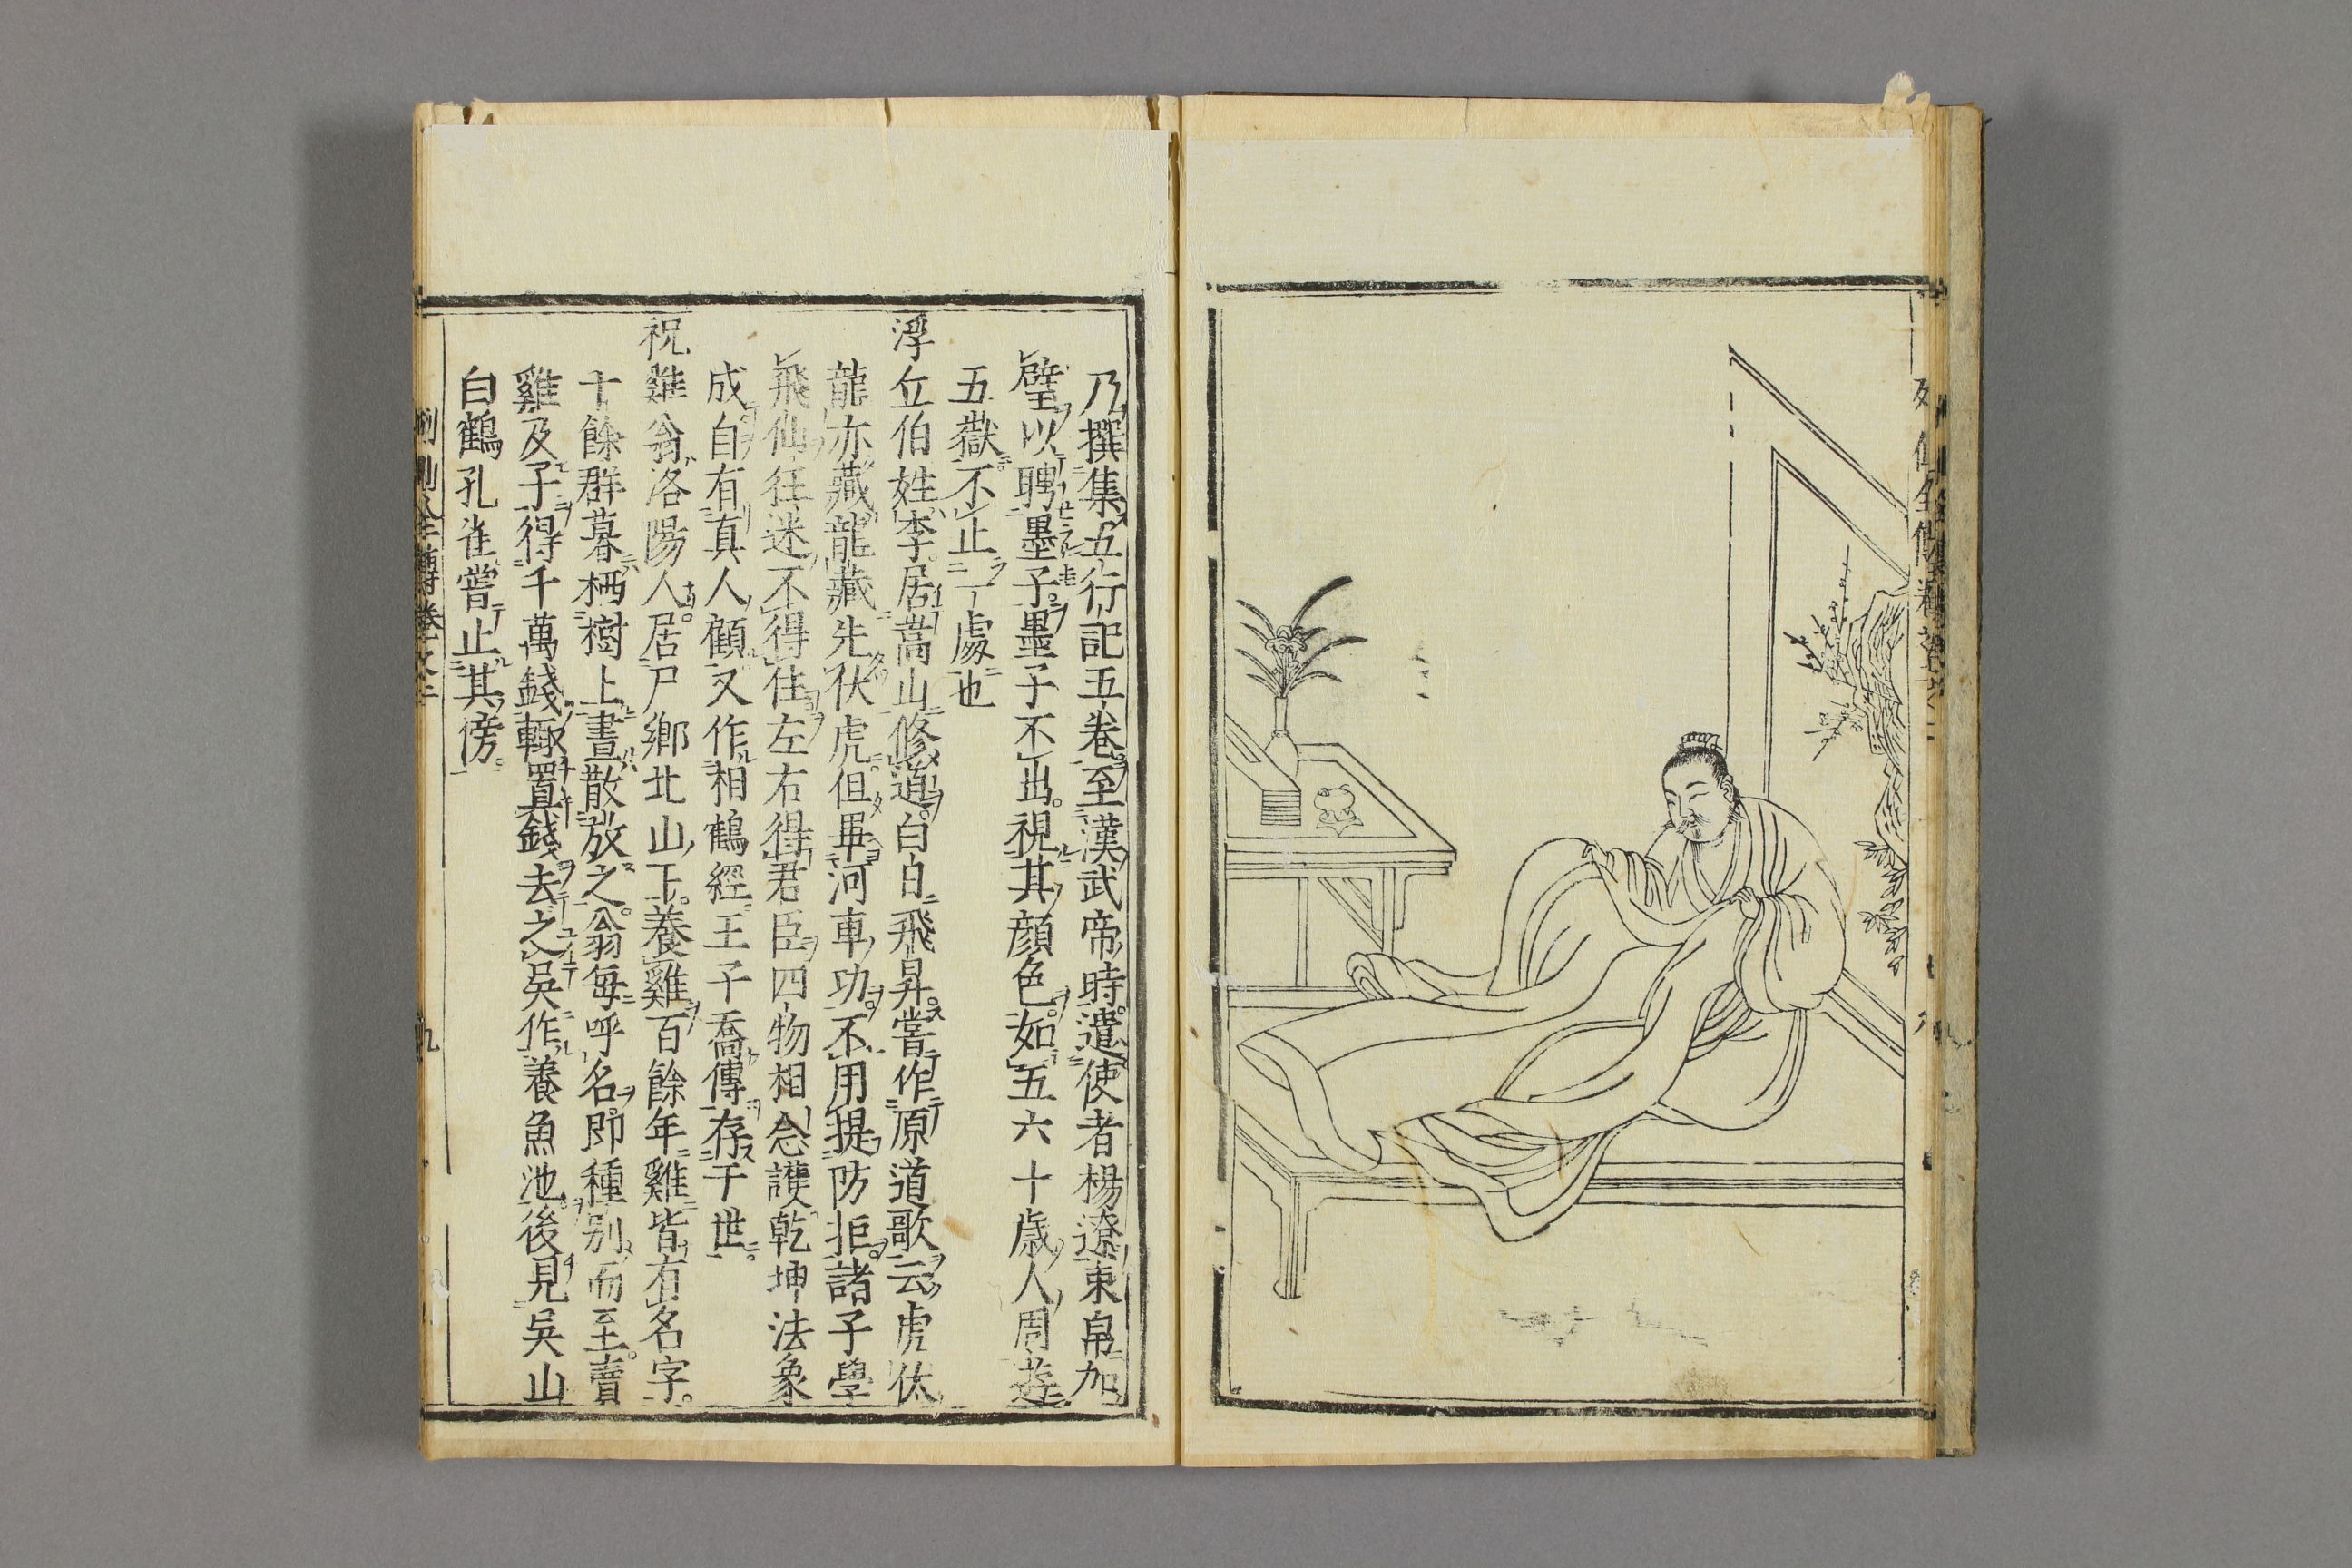 列仙全傳卷之二
乃撰集五行記五卷至漢武帝時遣使者楊遼束帛加
璧以聘墨子墨子不出視其顔色如五六十歳人周遊
五嶽不止一處也
浮丘伯姓李居嵩山修道白日飛昇嘗作原道歌云虎伏
龍亦藏龍藏先伏虎但畢河車功不用提防拒諸子學
飛仙狂迷不得住左右得君臣四物相念護乾坤法象
成自有真人顧又作相鶴經王子喬傳存于世
祝雞翁洛陽人居尸鄉北山下養雞百餘年雞皆有名字
十餘群暮栖樹上晝散放之翁每呼名即種別而至賣
雞及子得千萬錢輒置錢去之吳作養魚池後見吳山
白鶴孔雀嘗止其傍
全傳卷之二
九